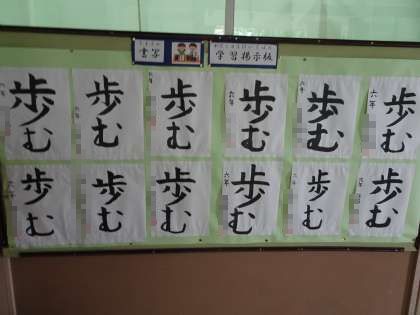 書写
学習掲示板
歩む
歩む
歩む
六年
歩む
歩む
六年
歩む
歩む
歩む
歩む
六年
歩む
歩む
歩む